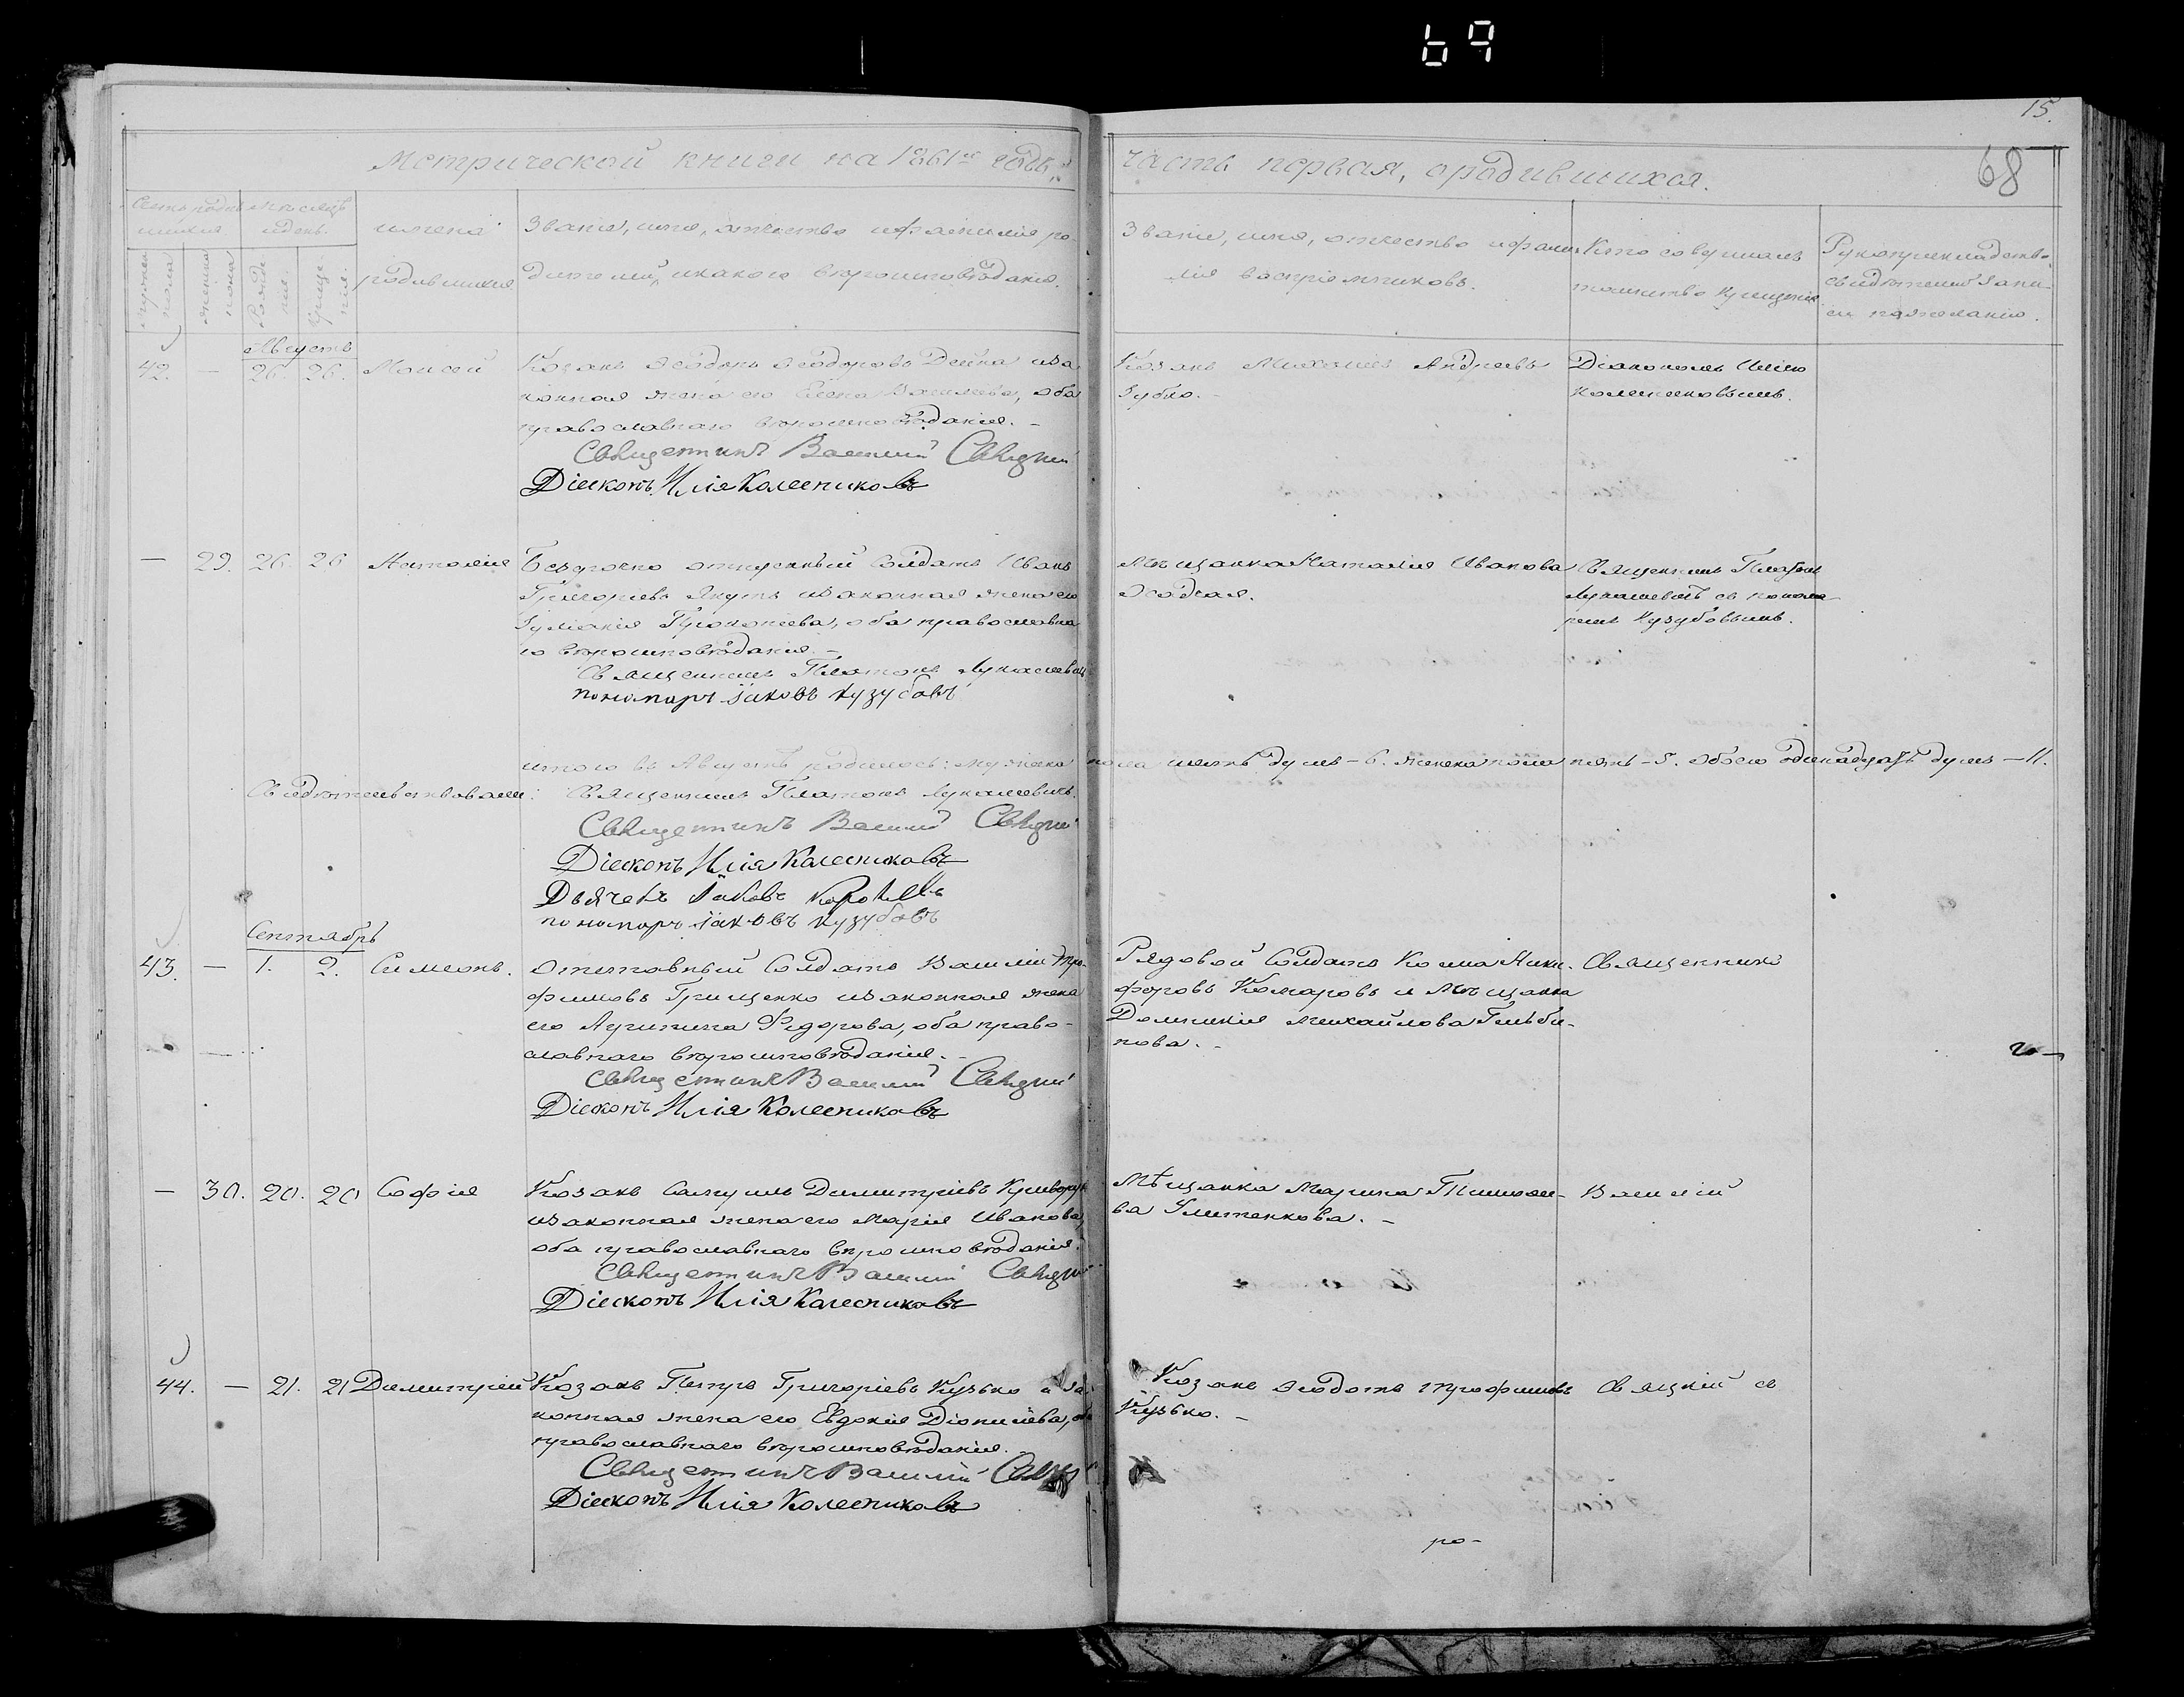 69
15.
Метрической книги на 1861й годъ,
часть первая, о родившихся.
68
мѣсяцъ
и день.
имена
родившихся
Званіе, имя, отчество и фамилія ро-
дителей, и какого вѣроисповѣданія.
Званіе, имя, отчество и фами-
лія воспріемниковъ.
Кто совершалъ
таинство крещенія
Рукоприкладство
свидѣтелей запи-
си по желанію.
мужеска
пола
женска
пола
Рожде-
нія.
Креще-
нія.
Августъ
42. — 26. 26. Моисей
Козакъ Ѳеодоръ Ѳеодоровъ Дейка и за
конная жена его Елена Васильева, оба
православнаго вѣроисповѣданія. -
Священникъ Василій Свяцкій
Діаконъ Илія Колесниковъ
Козакъ Михаилъ Андреевъ
Зубко. -
Діакономъ Иліею
Колесниковымъ.
— 29. 26. 26 Наталія
Безсрочно отпускный Солдатъ Иванъ
Григорьевъ Якуть и законная жена его
Іуліанія Прокопіева, оба православна
го вѣроисповѣданія. -
Священникъ Платонъ Лукашевичъ
пономарь Іаковъ Кузубовъ
Мѣщанка Наталія Иванова
Священникъ Платонъ
Лукашевичъ съ понома-
ремъ Кузубовымъ.
итого въ Августѣ родилось: мужеска пола шесть душъ - 6. женска пола пять - 5. обоего одинадцать душъ - 11.
Свидѣтельствовали: Священникъ Платонъ Лукашевичъ.
Священникъ Василій Свяцкій
Діаконъ Илія Колесниковъ
Дьячекъ Іаковъ
пономарь Іаковъ Кузубовъ
Сентябрь
43. — 1. 2. Симеонъ.
Отставный Солдатъ Василій Тро-
фимовъ Грищенко и законная жена
его Агрипина Федорова, оба право-
славнаго вѣроисповѣданія. -
Священникъ Василій Свяцкій
Діаконъ Илія Колесниковъ
Рядовой Солдатъ Косма Ники-
форовъ Комаровъ и Мѣщанка
Домникія Михайлова
нова. -
Священникъ
— 30. 20. 20 Софія
Козакъ Самуилъ Димитріевъ Криворук
и законная жена его Марія Иванова,
оба православнаго вѣроисповѣданія.
Священникъ Василій Свяцкій
Діаконъ Илія Колесниковъ
Мѣщанка Марина Тимоѳе-
ва
Василій
44. — 21. 21 Димитрій
Козакъ Петръ Григоріевъ Кузько и за-
конная жена его Евдокія Діонисіева, оба
православнаго вѣроисповѣданія.
Священникъ Василій
Діаконъ Илія Колесниковъ
Козакъ Ѳеодотъ Трофимовъ
Кузько. -
Свяцкій съ
ро-